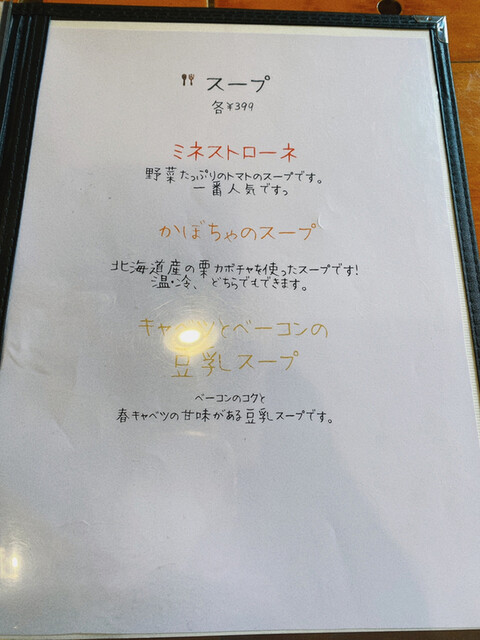 スープ
各¥399
ミネストローネ
野菜たっぷりのトマトのスープです。
一番人気ですっ
かぼちゃのスープ
北海道産の栗カボチャを使ったスープです!
温・冷、どちらでもできます。
キャベツとベーコンの
豆乳スープ
ベーコンのコクと
春キャベツの甘味がある豆乳スープです。